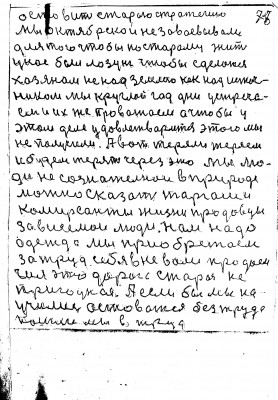 оставит старую стратегию 78
мы октябрской незавоевывали
для того чтобы постарому жит
у нас был лозунг чтобы сделатся
хозяином не над землею как над источ
ником мы круглой год дни встреча
ем и их же провожаем а чтобы у
этом деле удовлетварится этого мы
не получили. А вот теряли теряем
и будем терят через это мы лю
ди не сознателной в природе
можно сказат
комерсанты жизни продавцы
зависемой люди. Нам надо
одежда мы приобретаем
за труд себя в неволю продаем
сия это дорога стара не
пригодная. А если бы мы на
училис основатся без труда
мы в труд